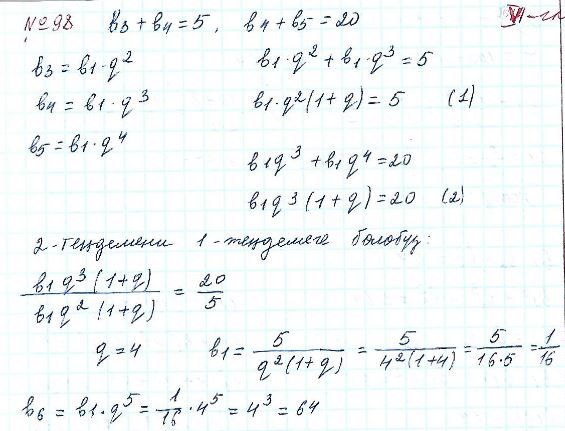 №98 b3 + b4 = 5, b4 + b5 = 20
b3 = b1 · q^2
b1 · q^2 + b1 · q^3 = 5
b4 = b1 · q^3
b1 · q^2 (1 + q) = 5 (1)
b5 = b1 · q^4
b1 q^3 + b1 q^4 = 20
b1 q^3 (1 + q) = 20 (2)
2-теңдемени 1-теңдемеге бөлөбүз:
b1 q^3 (1 + q) / b1 q^2 (1 + q) = 20/5
q = 4 b1 = 5 / q^2 (1 + q) = 5 / 4^2 (1 + 4) = 5 / 16·5 = 1/16
b6 = b1 · q^5 = 1/16 · 4^5 = 4^3 = 64